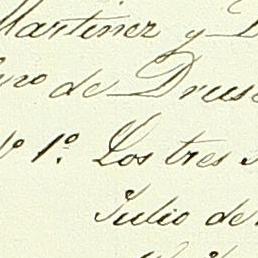 Martinez y
de Druse
1º. Los tres
Julio de